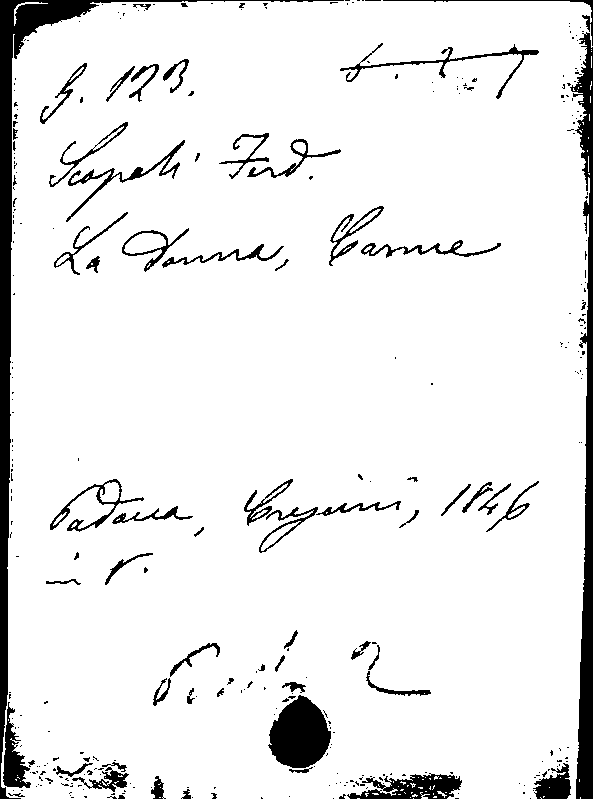 G. 123. 6. 2. 7
Scopoli Ferd.
La Donna, Carme
Padova, Crescini, 1846
in 8.
2